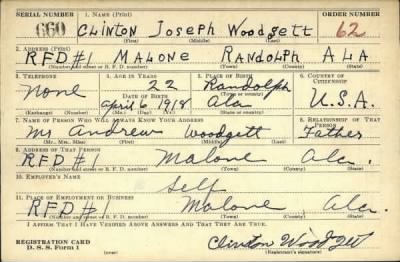 SERIAL NUMBER 1. NAME (Print) ORDER NUMBER
660 CLINTON JOSEPH WOODGETT 62
(First) (Middle) (Last)
2. ADDRESS (Print)
RFD#1 MALONE RANDOLPH ALA
(Number and street or R. F. D. number) (Town) (County) (State)
3. TELEPHONE 4. AGE IN YEARS 5. PLACE OF BIRTH 6. COUNTRY OF CITIZENSHIP
None 22 Randolph
DATE OF BIRTH (Town or county)
April 6 1918 Ala U.S.A.
(Exchange) (Number) (Mo.) (Day) (Yr.) (State or country)
7. NAME OF PERSON WHO WILL ALWAYS KNOW YOUR ADDRESS 8. RELATIONSHIP OF THAT PERSON
Mr Andrew Woodgett Father
(Mr., Mrs., Miss) (First) (Middle) (Last)
9. ADDRESS OF THAT PERSON
RFD#1 Malone Ala.
(Number and street or R. F. D. number) (Town) (County) (State)
10. EMPLOYER'S NAME
Self
11. PLACE OF EMPLOYMENT OR BUSINESS
RFD#1 Malone Ala.
(Number and street or R. F. D. number) (Town) (County) (State)
I AFFIRM THAT I HAVE VERIFIED ABOVE ANSWERS AND THAT THEY ARE TRUE.
REGISTRATION CARD
D. S. S. Form 1 Clinton Woodgett
(Registrant's signature)